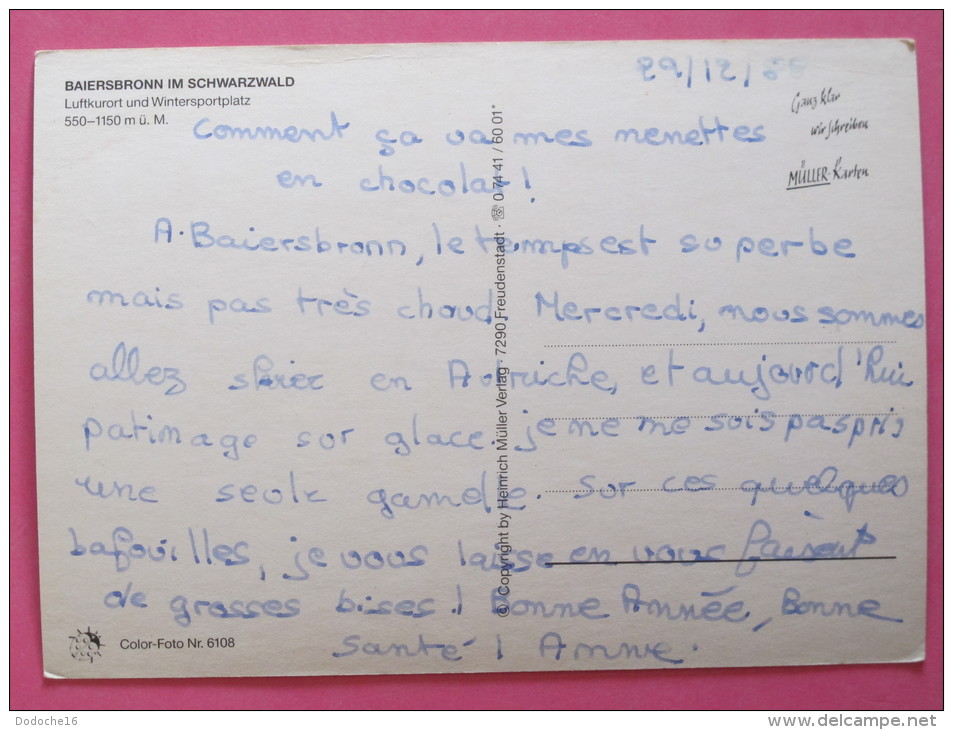 BAIERSBRONN IM SCHWARZWALD
Luftkurort und Wintersportplatz
550–1150 m ü. M.
29/12/
Ganz klar
wir schreiben
MÜLLER-Karten
Comment ça va mes nenettes
en chocolat !
A Baiersbronn, le temps est superbe
mais pas très chaud. Mercredi, nous sommes
allez skier en Autriche, et aujourd'hui
patinage sur glace. je ne me suis pas pris
une seule gamelle. Sur ces quelques
bafouilles, je vous laisse en vous faisant
de grosses bises ! Bonne Année, Bonne
Santé ! Anne.
© Copyright by Heinrich Müller Verlag · 7290 Freudenstadt · ☏ 0 74 41 / 60 01*
Color-Foto Nr. 6108
Dodoche16
www.delcampe.net